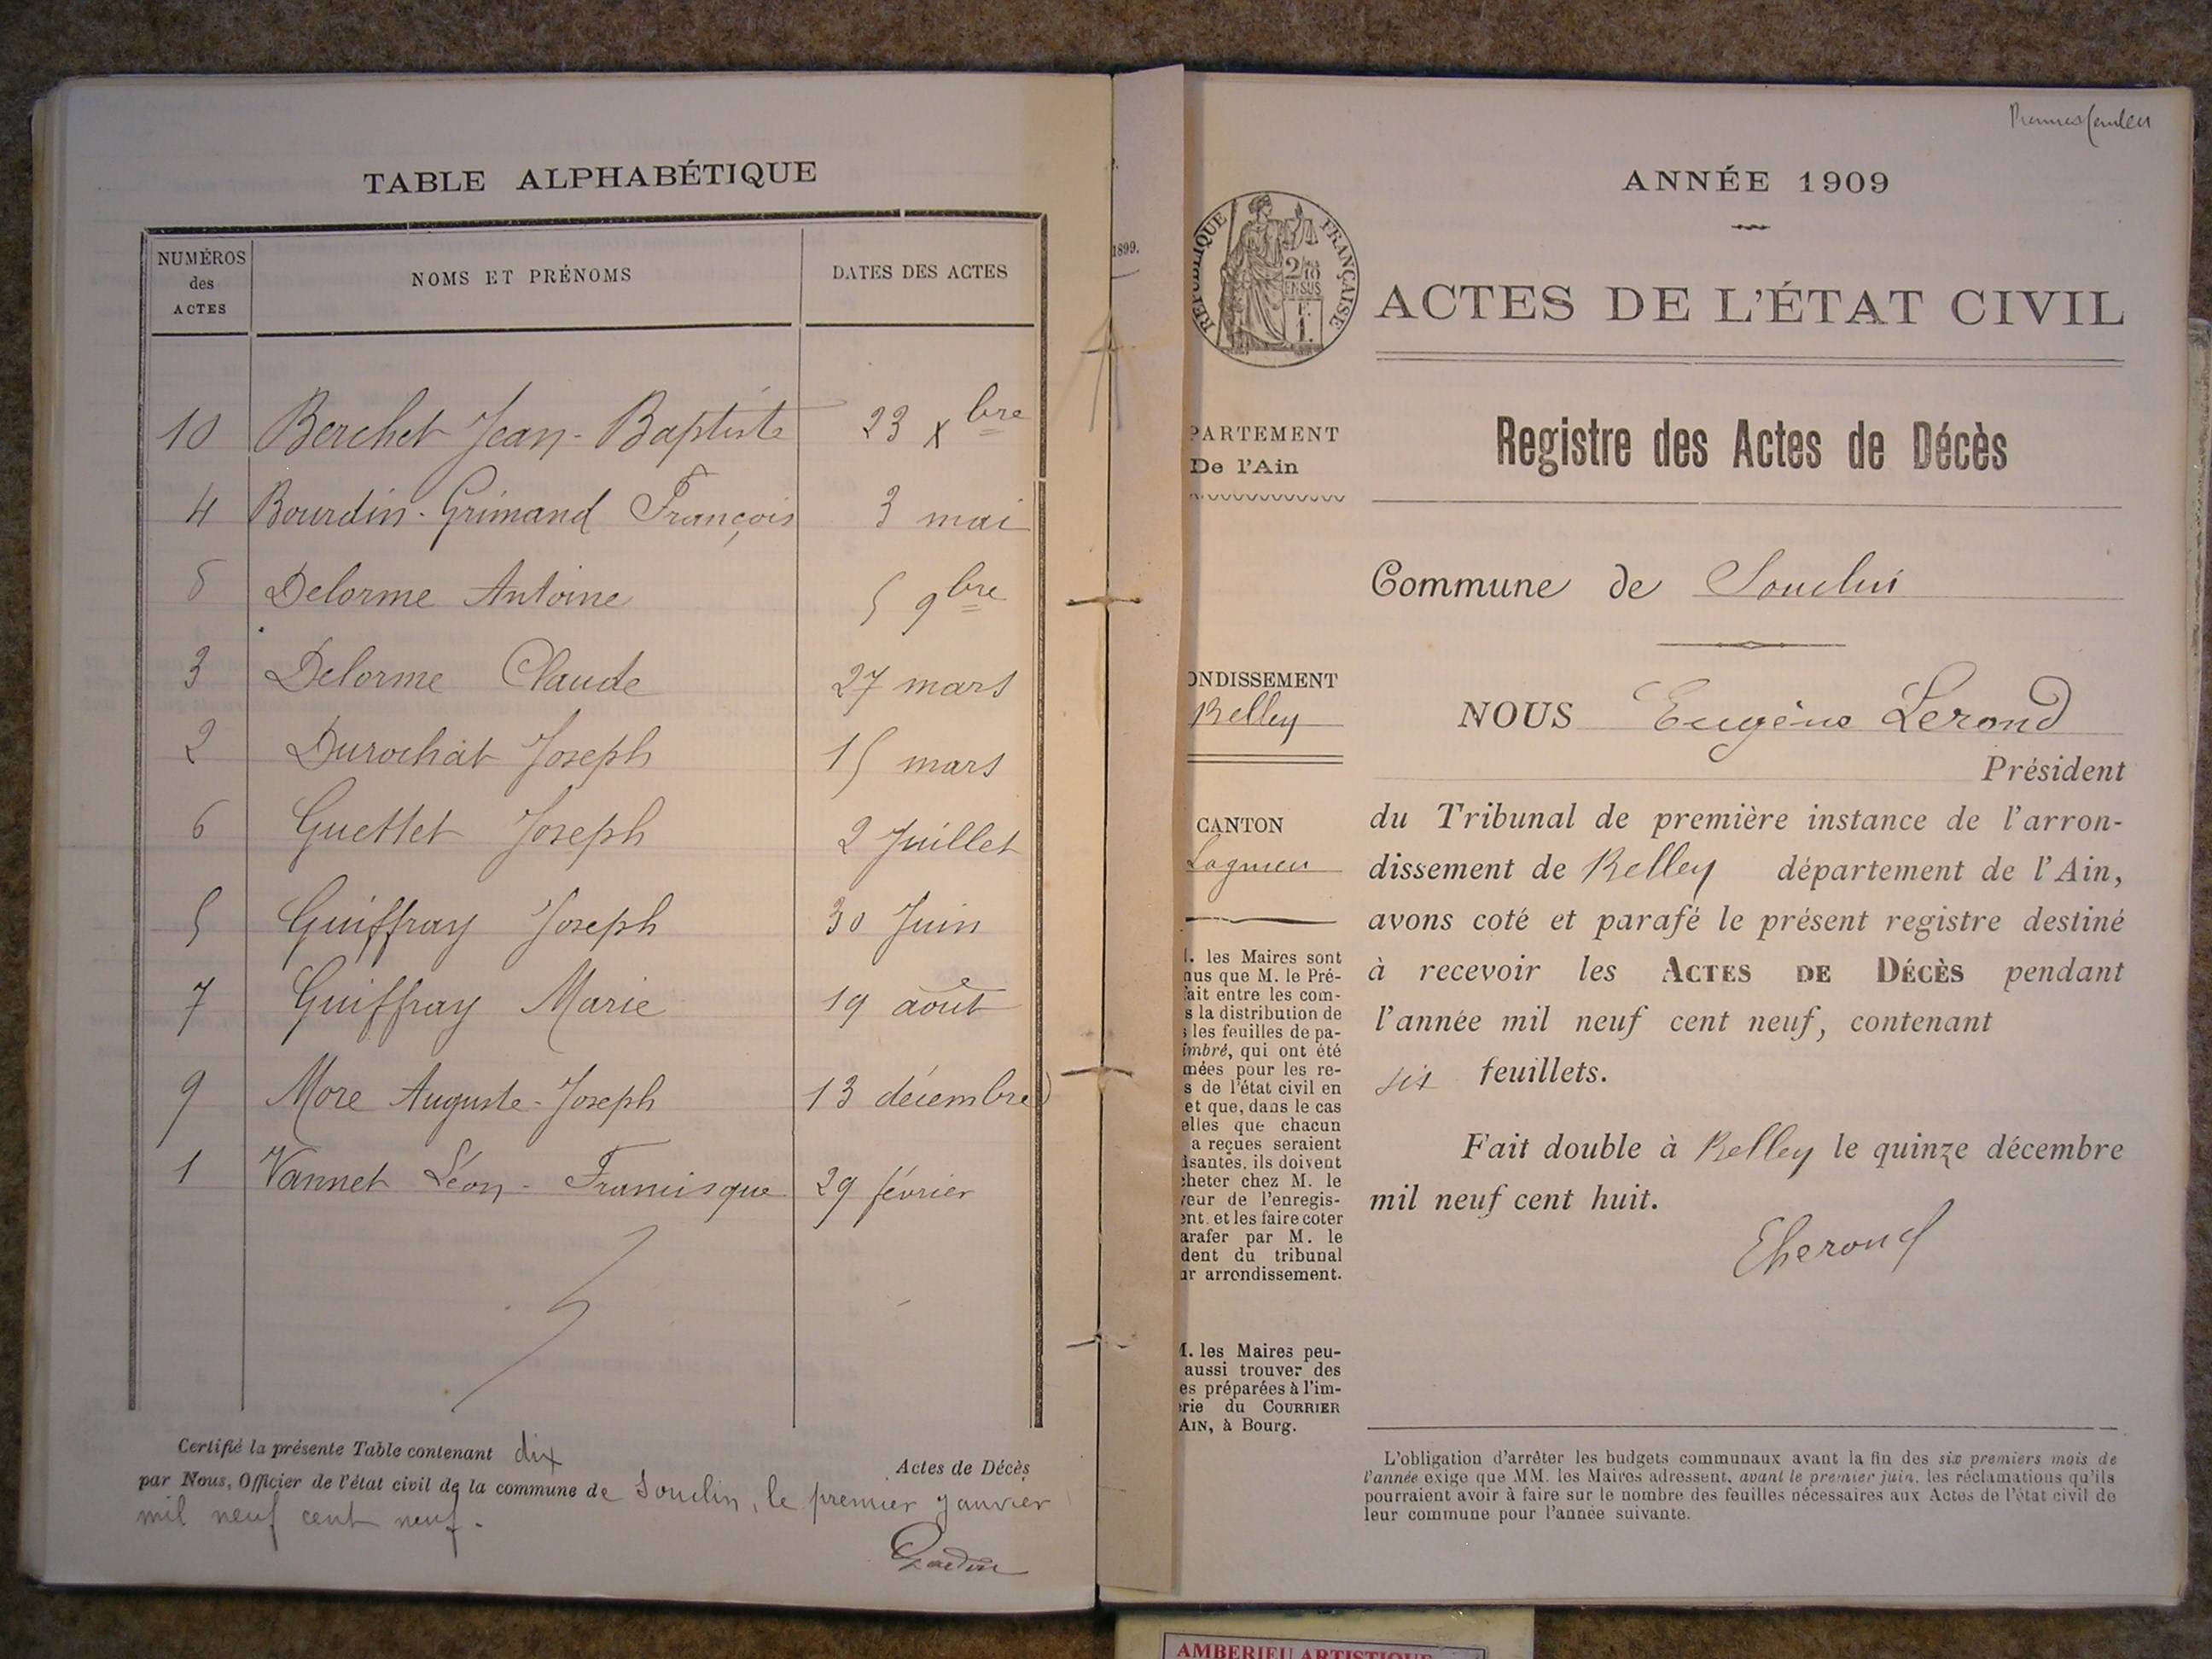 TABLE ALPHABÉTIQUE
NUMÉROS des ACTES NOMS ET PRÉNOMS DATES DES ACTES
10 Berchet Jean-Baptiste 23 Xbre
4 Bourdin-Grimand François 3 mai
8 Delorme Antoine 5 9bre
3 Delorme Claude 27 mars
2 Durochat Joseph 15 mars
6 Guettet Joseph 2 Juillet
5 Guiffray Joseph 30 Juin
7 Guiffray Marie 19 août
9 More Auguste-Joseph 13 décembre
1 Vannet Léon-Francisque 29 février
Certifié la présente Table contenant dix
Actes de Décès
par Nous, Officier de l'état civil de la commune de Souclin, le premier janvier
mil neuf cent neuf.
1899.
ANNÉE 1909
RÉPUBLIQUE FRANÇAISE
2/10
EN SUS
1 F.
ACTES DE L'ÉTAT CIVIL
PARTEMENT
De l'Ain
ONDISSEMENT
Belley
CANTON
Lagnieu
. les Maires sont
nus que M. le Pré-
fait entre les com-
s la distribution de
s les feuilles de pa-
imbré, qui ont été
mées pour les re-
s de l'état civil en
et que, dans le cas
elles que chacun
a reçues seraient
isantes, ils doivent
cheter chez M. le
veur de l'enregis-
ent. et les faire coter
arafer par M. le
dent du tribunal
ur arrondissement.
M. les Maires peu-
aussi trouver des
es préparées à l'im-
rie du COURRIER
AIN, à Bourg.
Registre des Actes de Décès
Commune de Souclin
NOUS Eugène Lerond
Président
du Tribunal de première instance de l'arron-
dissement de Belley département de l'Ain,
avons coté et parafé le présent registre destiné
à recevoir les ACTES DE DÉCÈS pendant
l'année mil neuf cent neuf, contenant
six feuillets.
Fait double à Belley le quinze décembre
mil neuf cent huit.
L'obligation d'arrêter les budgets communaux avant la fin des six premiers mois de
l'année exige que MM. les Maires adressent, avant le premier juin, les réclamations qu'ils
pourraient avoir à faire sur le nombre des feuilles nécessaires aux Actes de l'état civil de
leur commune pour l'année suivante.
AMBERIEU ARTISTIQUE